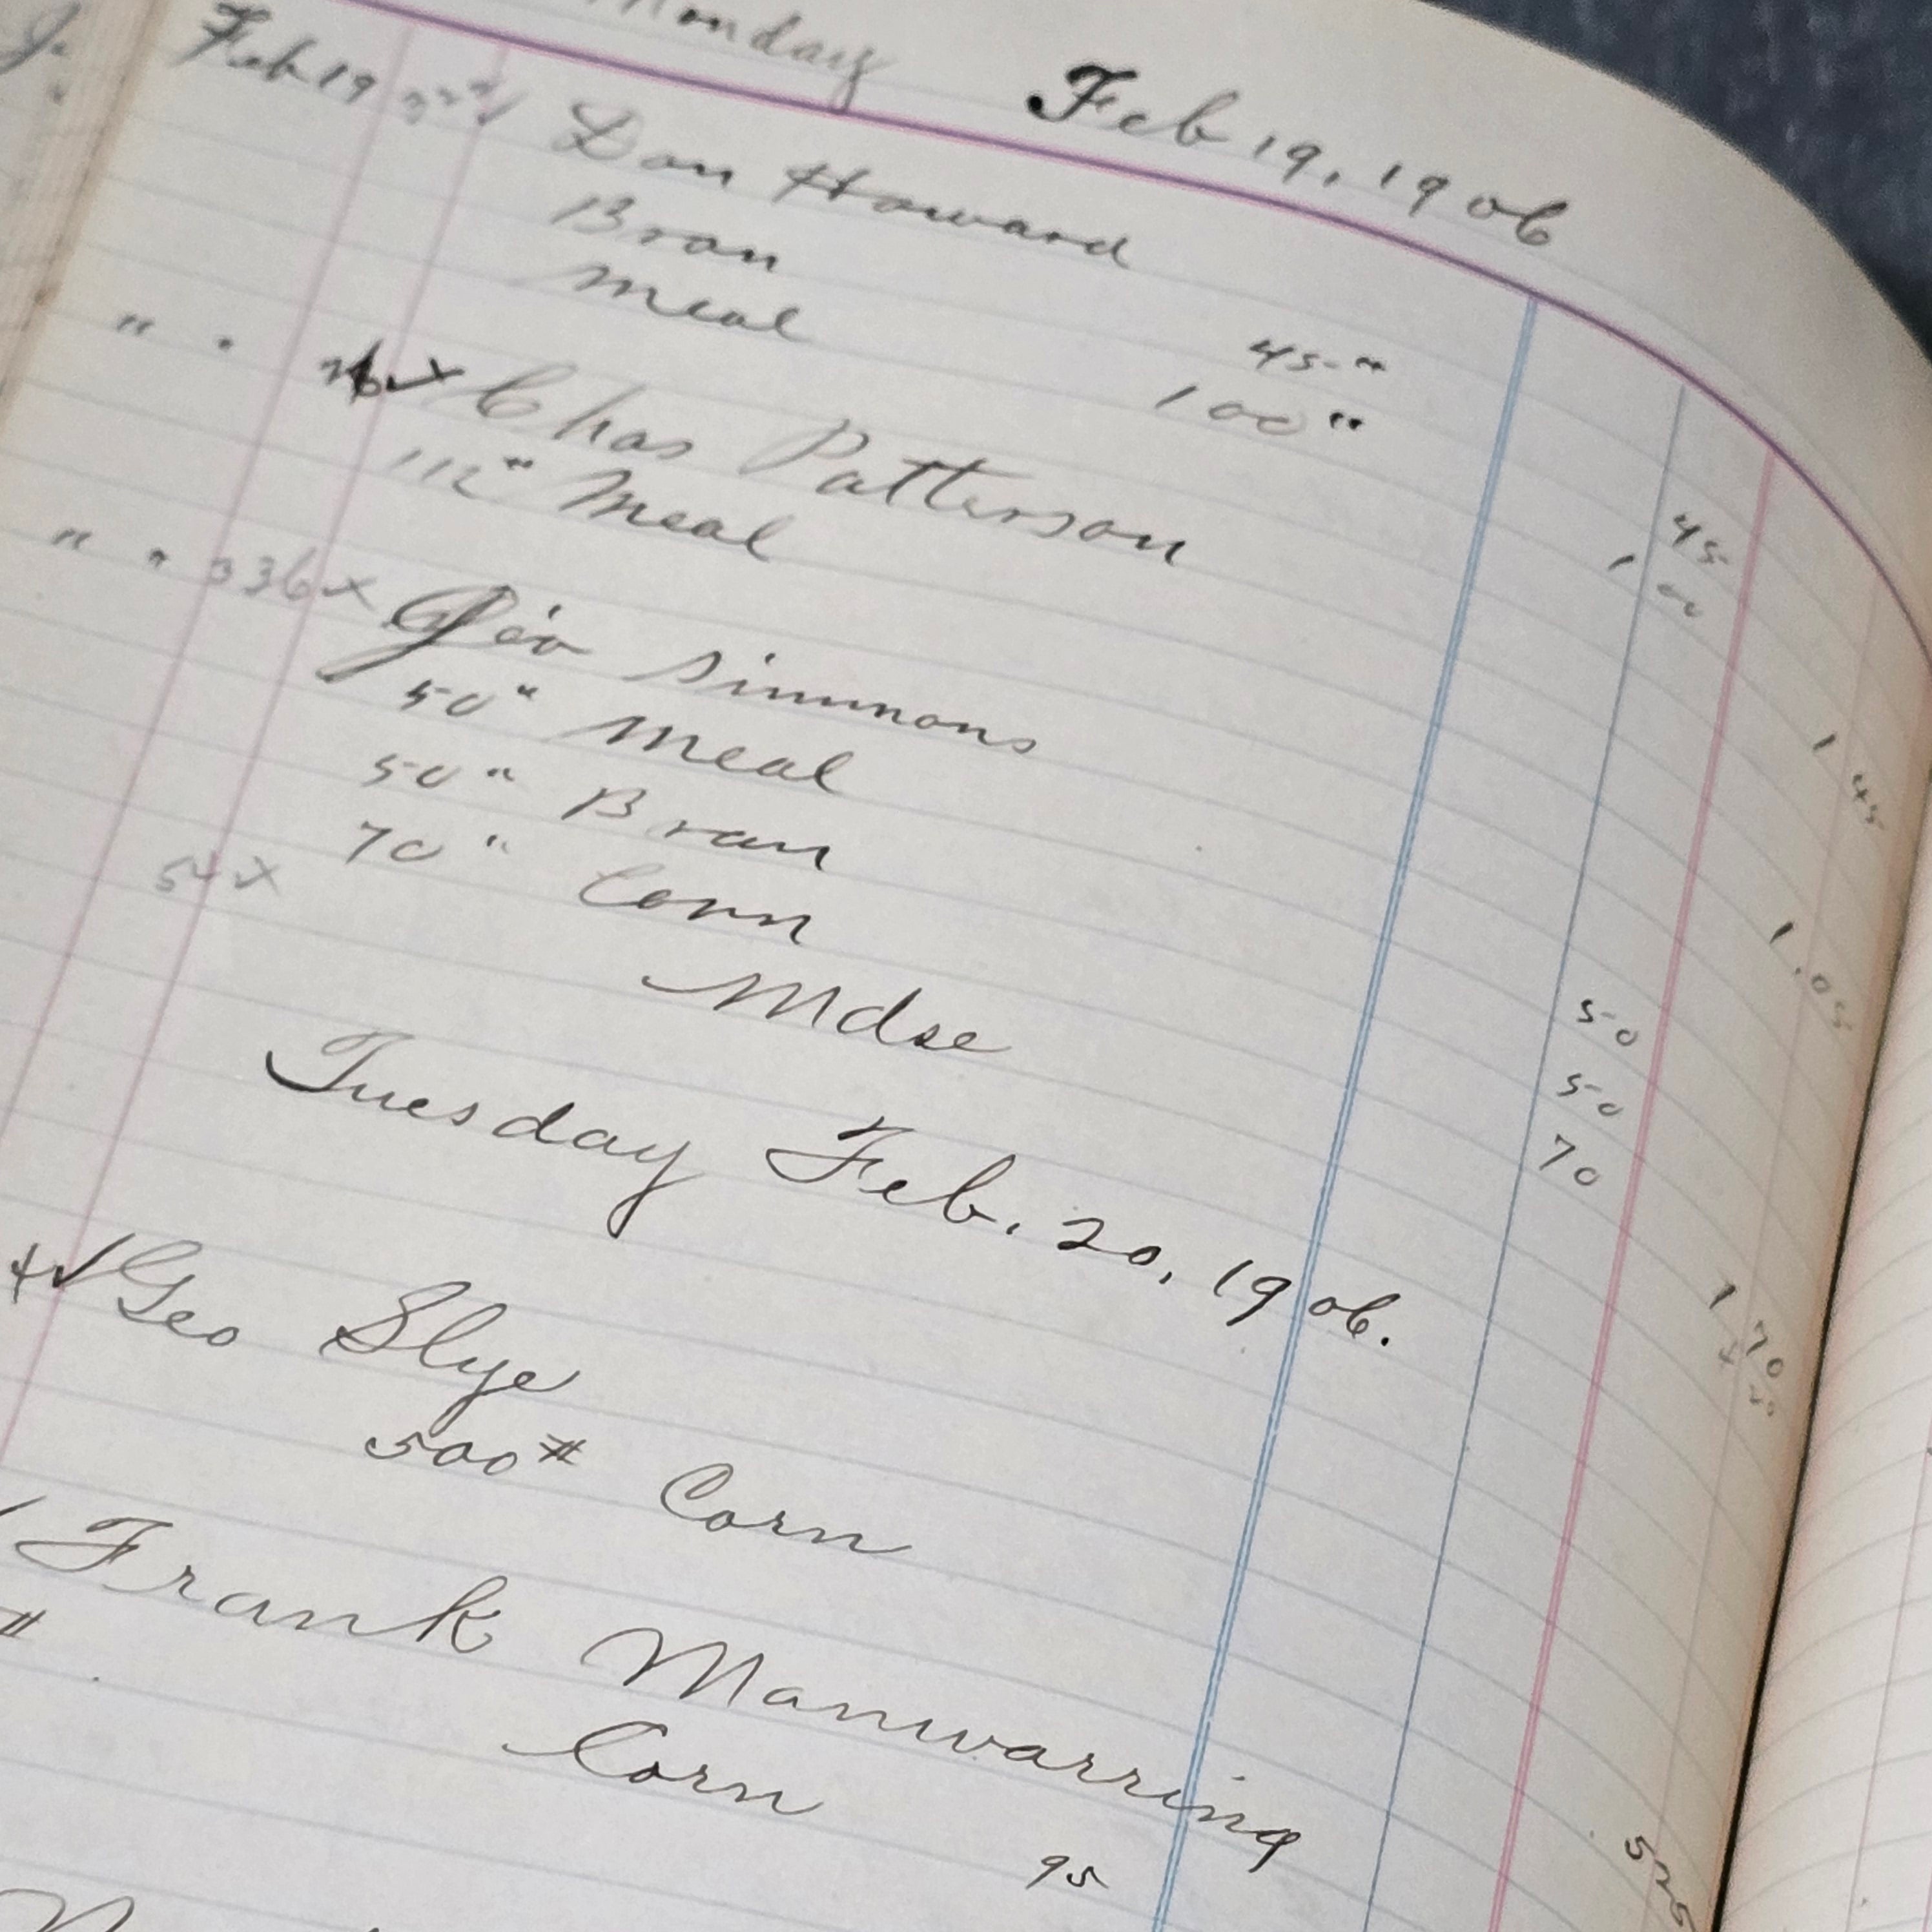 Monday Feb 19, 1906
Feb 19 Don Howard
Bran 45 " 45
Meal 100 " 1 00 1 45
" " Chas Patterson
112 " Meal 1.05
" " 336 x Geo Simmons
50 " Meal 50
50 " Bran 50
70 " Corn 70 1 70
54 x Mdse
Tuesday Feb. 20, 1906.
Geo Slye
500 # Corn 525
Frank Manwarring
# Corn 95